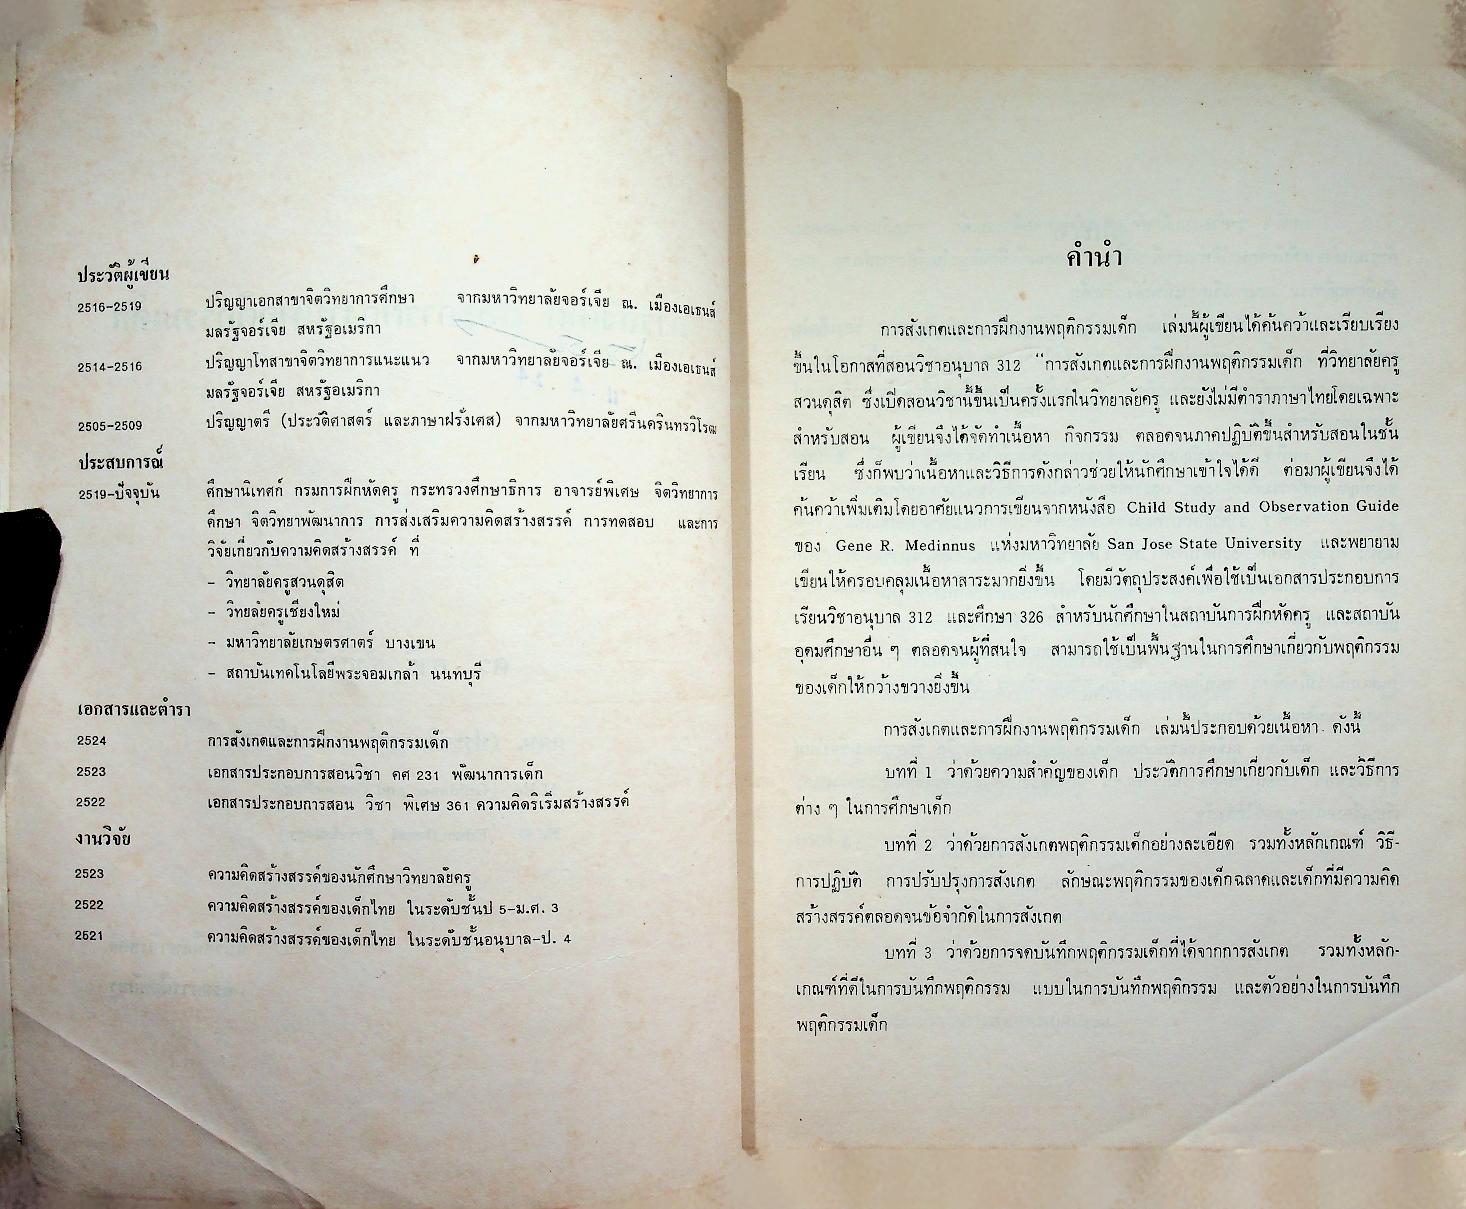 ประวัติผู้เขียน
2516-2519 ปริญญาเอกสาขาจิตวิทยาการศึกษา จากมหาวิทยาลัยจอร์เจีย ณ. เมืองเอเธนส์
มลรัฐจอร์เจีย สหรัฐอเมริกา
2514-2516 ปริญญาโทสาขาจิตวิทยาการแนะแนว จากมหาวิทยาลัยจอร์เจีย ณ. เมืองเอเธนส์
มลรัฐจอร์เจีย สหรัฐอเมริกา
2505-2509 ปริญญาตรี (ประวัติศาสตร์ และภาษาฝรั่งเศส) จากมหาวิทยาลัยศรีนครินทรวิโรฒ
ประสบการณ์
2519-ปัจจุบัน ศึกษานิเทศก์ กรมการฝึกหัดครู กระทรวงศึกษาธิการ อาจารย์พิเศษ จิตวิทยาการ
ศึกษา จิตวิทยาพัฒนาการ การส่งเสริมความคิดสร้างสรรค์ การทดสอบ และการ
วิจัยเกี่ยวกับความคิดสร้างสรรค์ ที่
- วิทยาลัยครูสวนดุสิต
- วิทยลัยครูเชียงใหม่
- มหาวิทยาลัยเกษตรศาตร์ บางเขน
- สถาบันเทคโนโลยีพระจอมเกล้า นนทบุรี
เอกสารและตำรา
2524 การสังเกตและการฝึกงานพฤติกรรมเด็ก
2523 เอกสารประกอบการสอนวิชา คศ 231 พัฒนาการเด็ก
2522 เอกสารประกอบการสอน วิชา พิเศษ 361 ความคิดริเริ่มสร้างสรรค์
งานวิจัย
2523 ความคิดสร้างสรรค์ของนักศึกษาวิทยาลัยครู
2522 ความคิดสร้างสรรค์ของเด็กไทย ในระดับชั้นป 5-ม.ศ. 3
2521 ความคิดสร้างสรรค์ของเด็กไทย ในระดับชั้นอนุบาล-ป. 4
คำนำ
การสังเกตและการฝึกงานพฤติกรรมเด็ก เล่มนี้ผู้เขียนได้ค้นคว้าและเรียบเรียง
ขึ้นในโอกาสที่สอนวิชาอนุบาล 312 “การสังเกตและการฝึกงานพฤติกรรมเด็ก ที่วิทยาลัยครู
สวนดุสิต ซึ่งเปิดสอนวิชานี้ขึ้นเป็นครั้งแรกในวิทยาลัยครู และยังไม่มีตำราภาษาไทยโดยเฉพาะ
สำหรับสอน ผู้เขียนจึงได้จัดทำเนื้อหา กิจกรรม ตลอดจนภาคปฏิบัติขึ้นสำหรับสอนในชั้น
เรียน ซึ่งก็พบว่าเนื้อหาและวิธีการดังกล่าวช่วยให้นักศึกษาเข้าใจได้ดี ต่อมาผู้เขียนจึงได้
ค้นคว้าเพิ่มเติมโดยอาศัยแนวการเขียนจากหนังสือ Child Study and Observation Guide
ของ Gene R. Medinnus แห่งมหาวิทยาลัย San Jose State University และพยายาม
เขียนให้ครอบคลุมเนื้อหาสาระมากยิ่งขึ้น โดยมีวัตถุประสงค์เพื่อใช้เป็นเอกสารประกอบการ
เรียนวิชาอนุบาล 312 และศึกษา 326 สำหรับนักศึกษาในสถาบันการฝึกหัดครู และสถาบัน
อุดมศึกษาอื่น ๆ ตลอดจนผู้ที่สนใจ สามารถใช้เป็นพื้นฐานในการศึกษาเกี่ยวกับพฤติกรรม
ของเด็กให้กว้างขวางยิ่งขึ้น
การสังเกตและการฝึกงานพฤติกรรมเด็ก เล่มนี้ประกอบด้วยเนื้อหา ดังนี้
บทที่ 1 ว่าด้วยความสำคัญของเด็ก ประวัติการศึกษาเกี่ยวกับเด็ก และวิธีการ
ต่าง ๆ ในการศึกษาเด็ก
บทที่ 2 ว่าด้วยการสังเกตพฤติกรรมเด็กอย่างละเอียด รวมทั้งหลักเกณฑ์ วิธี-
การปฏิบัติ การปรับปรุงการสังเกต ลักษณะพฤติกรรมของเด็กฉลาดและเด็กที่มีความคิด
สร้างสรรค์ตลอดจนข้อจำกัดในการสังเกต
บทที่ 3 ว่าด้วยการจดบันทึกพฤติกรรมเด็กที่ได้จากการสังเกต รวมทั้งหลัก-
เกณฑ์ที่ดีในการบันทึกพฤติกรรม แบบในการบันทึกพฤติกรรม และตัวอย่างในการบันทึก
พฤติกรรมเด็ก